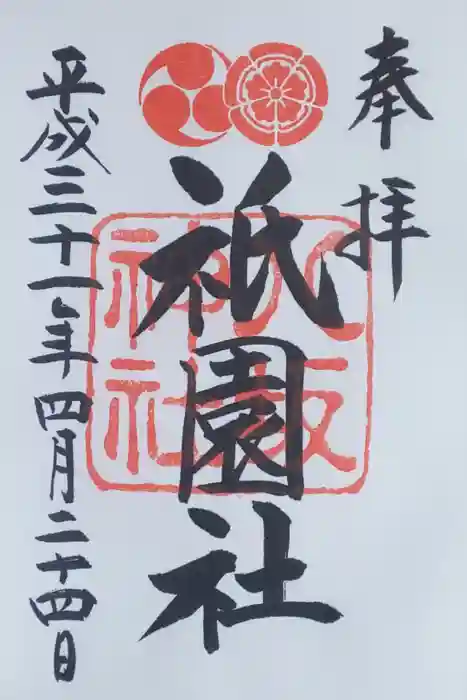 奉拝
祇園社
八坂
神社
平成三十一年四月二十四日